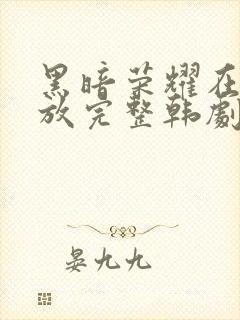 黑暗荣耀在
放完整韩劇
晏九九